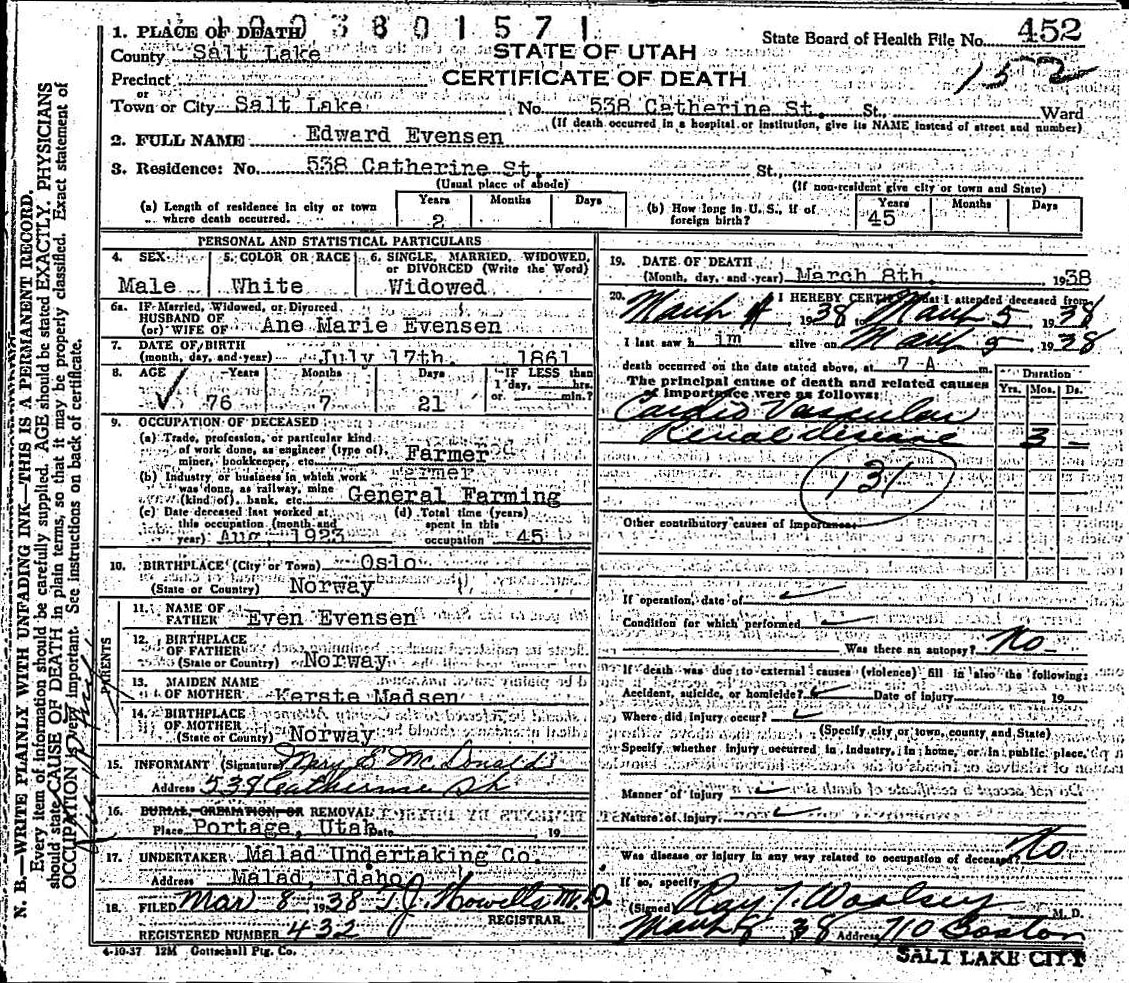 1003801571
1. PLACE OF DEATH
County Salt Lake
STATE OF UTAH
State Board of Health File No. 452
Precinct
or
CERTIFICATE OF DEATH
Town or City Salt Lake No. 538 Catherine St. St., Ward
(If death occurred in a hospital or institution, give its NAME instead of street and number)
2. FULL NAME Edward Evensen
3. Residence: No. 538 Catherine St. St.,
(Usual place of abode) (If non-resident give city or town and State)
(a) Length of residence in city or town where death occurred. Years 2 Months Days
(b) How long in U. S., if of foreign birth? Years 45 Months Days
PERSONAL AND STATISTICAL PARTICULARS
4. SEX Male
5. COLOR OR RACE White
6. SINGLE, MARRIED, WIDOWED, or DIVORCED (Write the Word) Widowed
6a. If Married, Widowed, or Divorced
HUSBAND OF
(or) WIFE OF Ane Marie Evensen
7. DATE OF BIRTH
(month, day, and year) July 17th. 1861
8. AGE Years 76 Months 7 Days 21 IF LESS than 1 day, hrs. or min.?
9. OCCUPATION OF DECEASED
(a) Trade, profession, or particular kind
of work done, as engineer (type of),
miner, bookkeeper, etc. Farmer
(b) Industry or business in which work Farmer
was done, as railway, mine
(kind of), bank, etc. General Farming
(c) Date deceased last worked at
this occupation (month and
year) Aug. 1923
(d) Total time (years)
spent in this
occupation 45
10. BIRTHPLACE (City or Town) Oslo
(State or Country) Norway
PARENTS
11. NAME OF
FATHER Even Evensen
12. BIRTHPLACE
OF FATHER
(State or Country) Norway
13. MAIDEN NAME
OF MOTHER Kerste Madsen
14. BIRTHPLACE
OF MOTHER
(State or Country) Norway
15. INFORMANT (Signature) Mary E McDonald
Address 538 Catherine St
16. BURIAL, CREMATION OR REMOVAL
Place Portage, Utah Date 19
17. UNDERTAKER Malad Undertaking Co.
Address Malad, Idaho
18. FILED Mar 8 1938 T.J. Howells M.D.
REGISTRAR.
REGISTERED NUMBER 432
4-10-37 12M Gottschall Ptg. Co.
19. DATE OF DEATH
(Month, day, and year) March 8th. 1938
20. I HEREBY CERTIFY that I attended deceased from
March 1938 to March 5 1938
I last saw h im alive on March 5 1938
death occurred on the date stated above, at 7-A m.
The principal cause of death and related causes
of importance were as follows:
Duration
Yrs. Mos. Ds.
Cardio Vascular
Renal disease 3 -
131
Other contributory causes of importance:
If operation, date of
Condition for which performed
Was there an autopsy? No
If death was due to external causes (violence) fill in also the following:
Accident, suicide, or homicide? Date of injury 19
Where did injury occur?
(Specify city or town, county and State)
Specify whether injury occurred in industry, in home, or in public place.
Manner of injury
Nature of injury
Was disease or injury in any way related to occupation of deceased? No
If so, specify
(Signed) Ray T. Woolsey M. D.
March 38 Address 710 Boston
SALT LAKE CITY
N. B.—WRITE PLAINLY WITH UNFADING INK—THIS IS A PERMANENT RECORD.
Every item of information should be carefully supplied. AGE should be stated EXACTLY. PHYSICIANS
should state CAUSE OF DEATH in plain terms, so that it may be properly classified. Exact statement of
OCCUPATION is very important. See instructions on back of certificate.